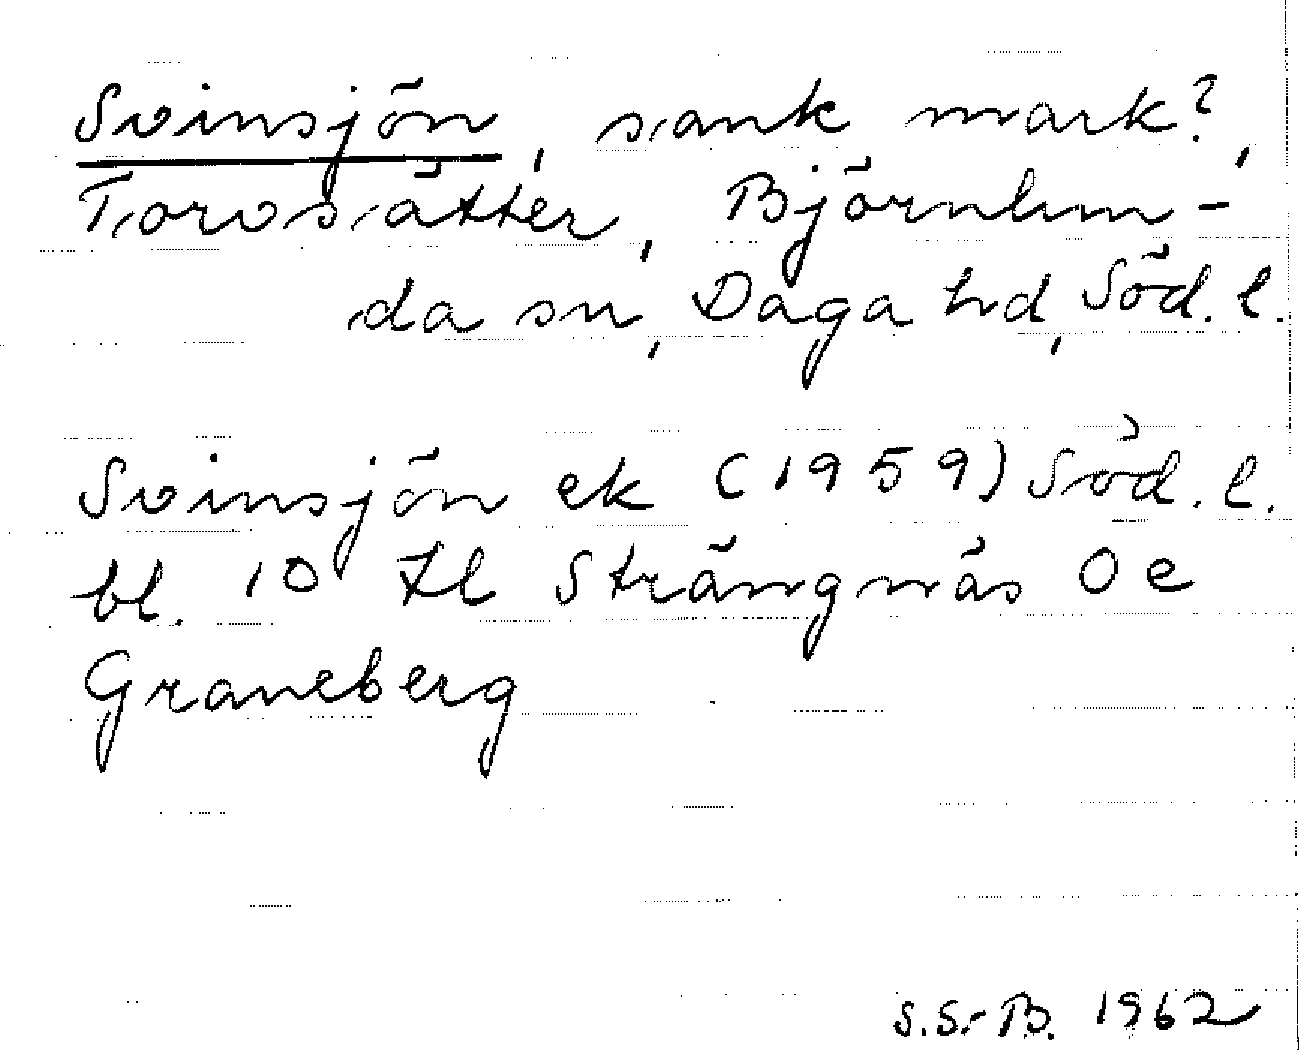 Svinsjön, sank mark?,
Torvsätter, Björnlun-
da sn, Daga hd, Söd. l.
Svinsjön ek (1959) Söd. l.
bl. 10 H Strängnäs 0 e
Graneberg
S.S.-B. 1962